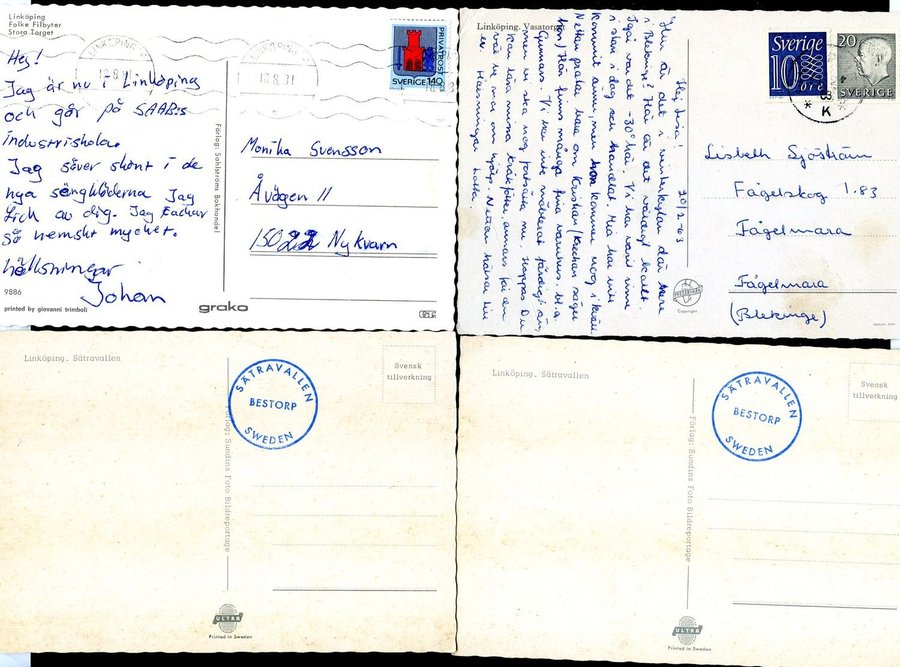 Linköping
Folke Filbyter
Stora Torget
LINKÖPING
18.8.81
PRIVATPOST
SVERIGE 140
Hej!
Jag är nu i Linköping
och går på SAAB:s
industriskola.
Jag sover skönt i de
nya sängkläderna Jag
fick av dig. Jag tackar
så hemskt mycket.
hälsningar
Johan
Förlag: Sahlströms Bokhandel
Monika Svensson
Åvägen 11
150 22 Nykvarn
9886
printed by giovanni trimboli
grako
Linköping. Vasatorget
Hej Avia!
20/2-63
Hur är det i vinterkylan där nere
i Blekinge? Här är det väldigt kallt.
Igår var det -30° här. Vi har varit inne
i stan i dag och handlat. Ma har inte
kommit ännu, men hon kommer nog i kväll.
finns många fina varuhus. bl.a
Gunnars. Vi har inte
men vi ska nog fortsätta nu. Hoppas Du
kan
Hälsningar
Sverige
10 öre
20
SVERIGE
K
Lisbeth Sjöström
Fågelskog 1.83
Fågelmara
Fågelmara
(Blekinge)
PRESSBYRÅN
Copyright
Linköping. Sätravallen
SÄTRAVALLEN
BESTORP
SWEDEN
Svensk
tillverkning
Förlag: Sundins Foto Bildreportage
ULTRA
Printed in Sweden
Linköping. Sätravallen
SÄTRAVALLEN
BESTORP
SWEDEN
Svensk
tillverkning
Förlag: Sundins Foto Bildreportage
ULTRA
Printed in Sweden